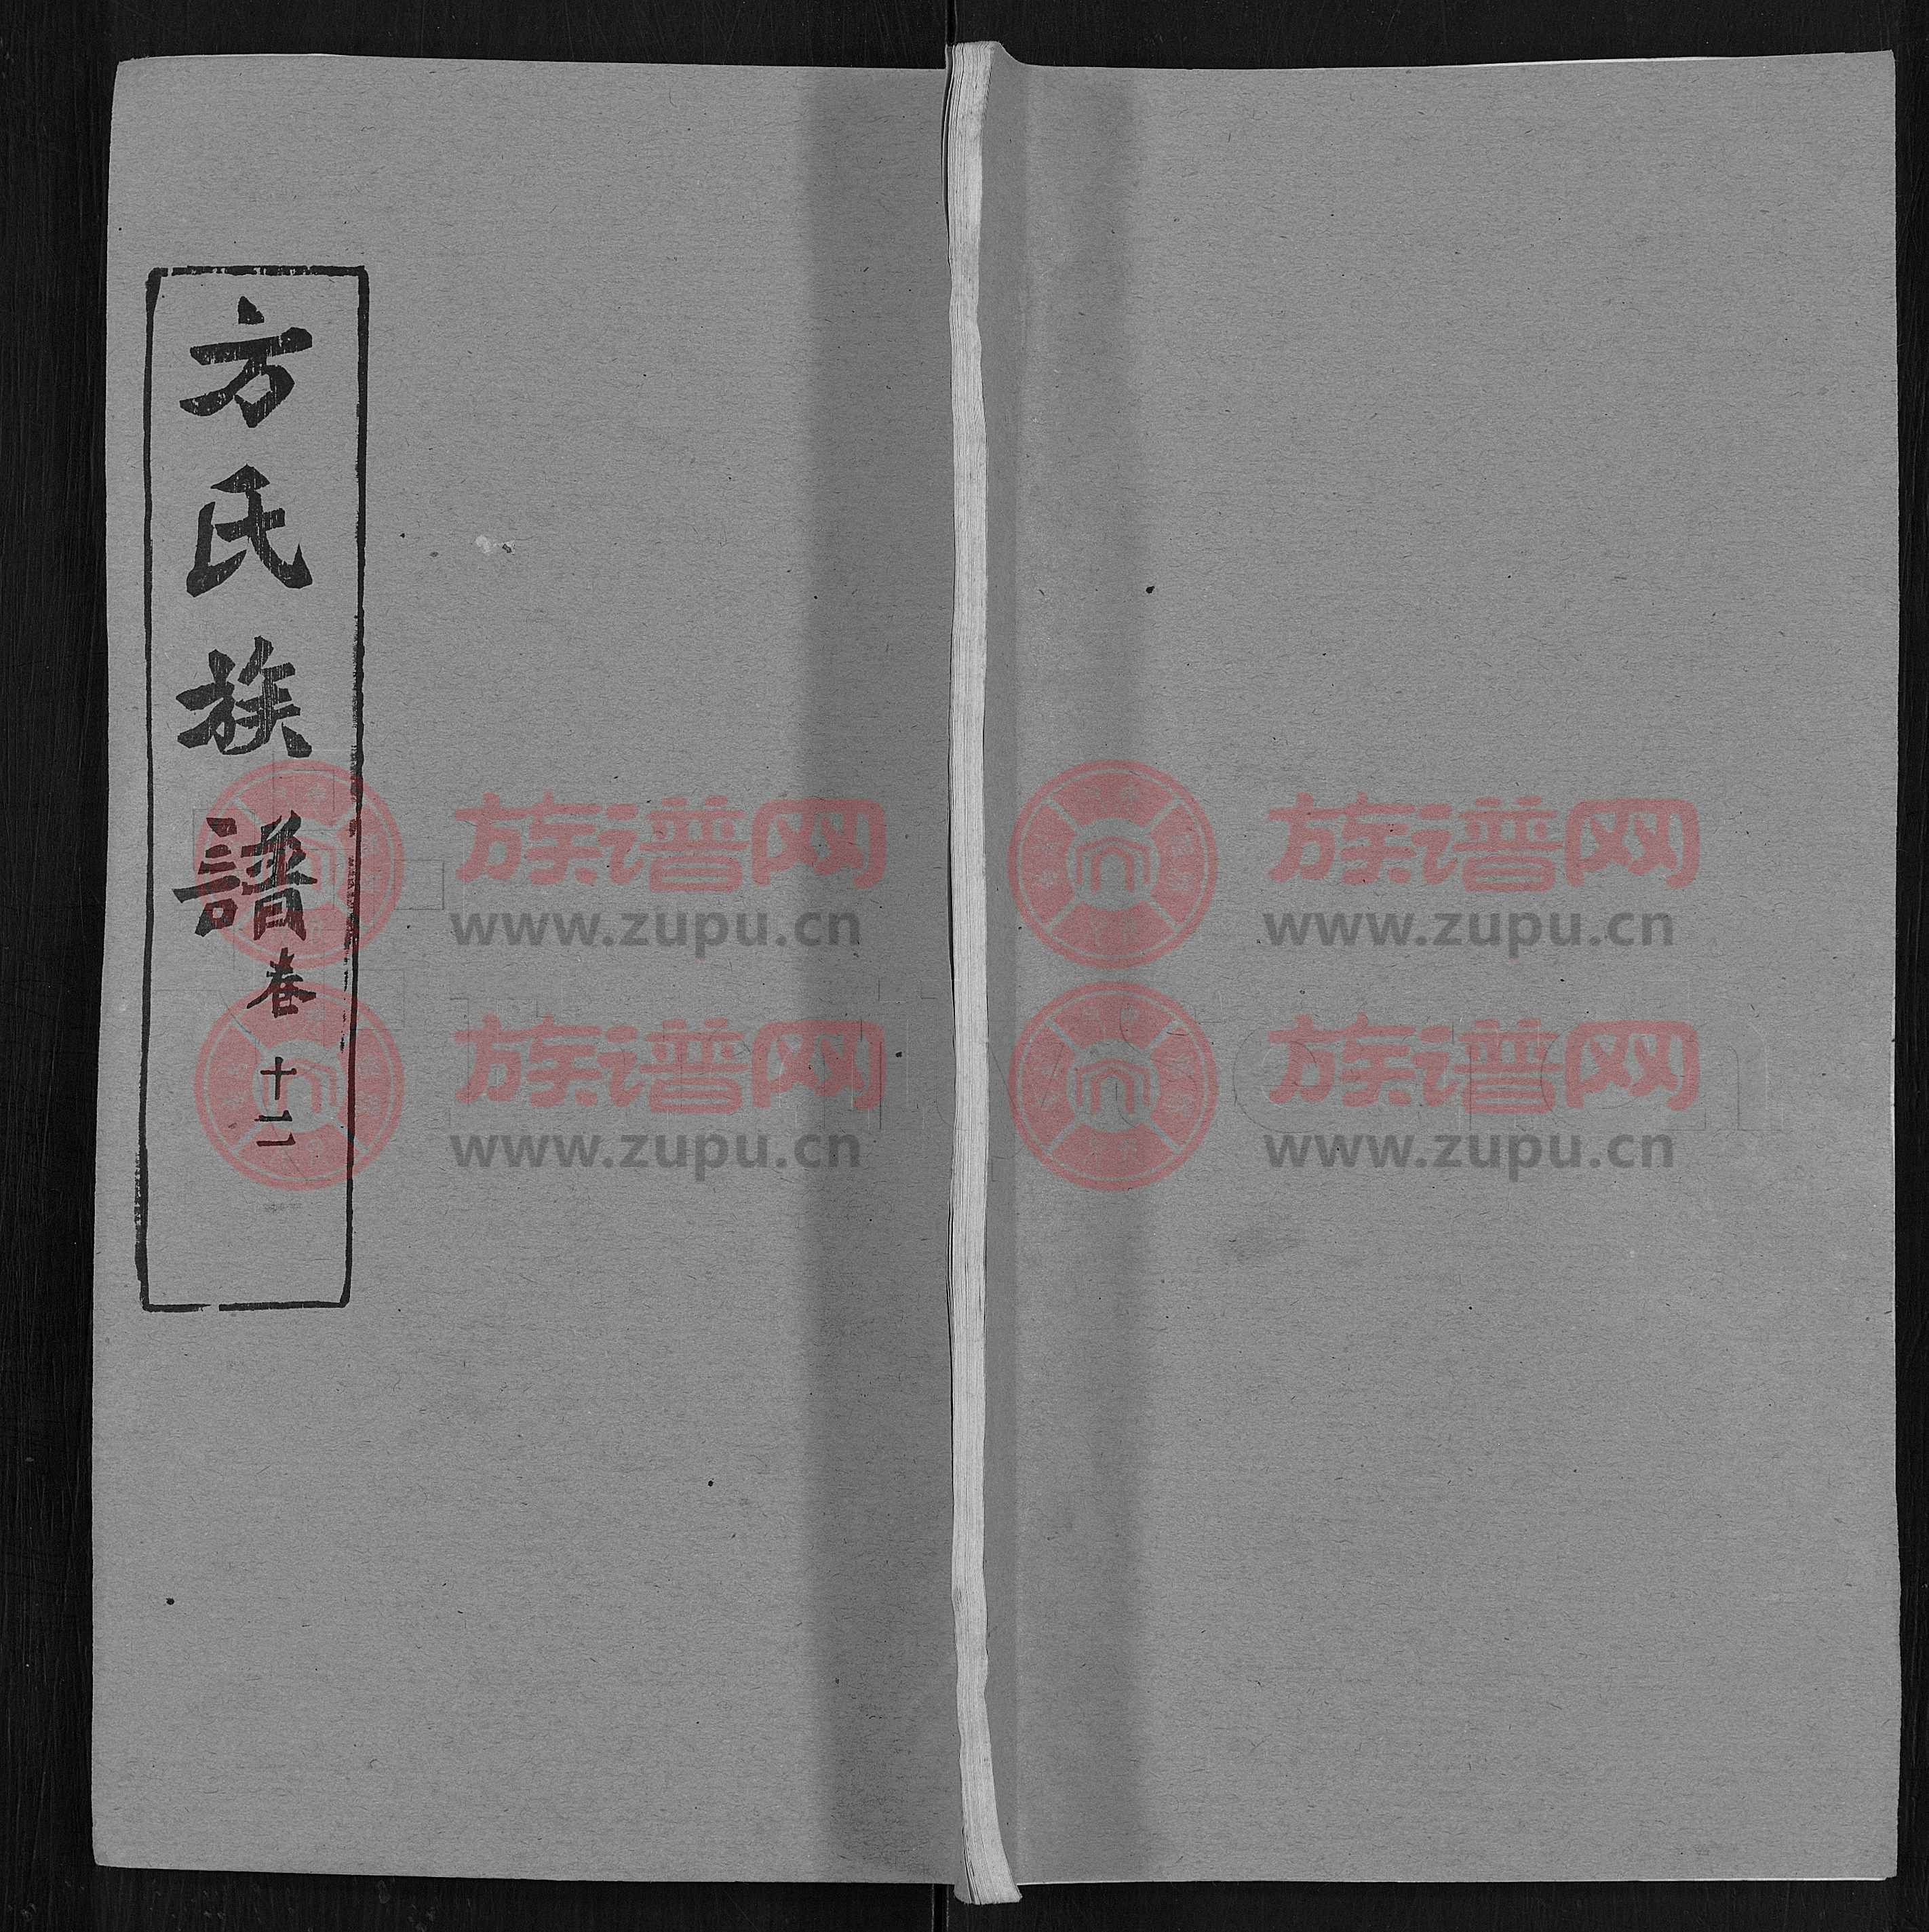 方氏族譜 卷十二
族谱网
www.zupu.cn
族谱网
www.zupu.cn
族谱网
www.zupu.cn
族谱网
www.zupu.cn